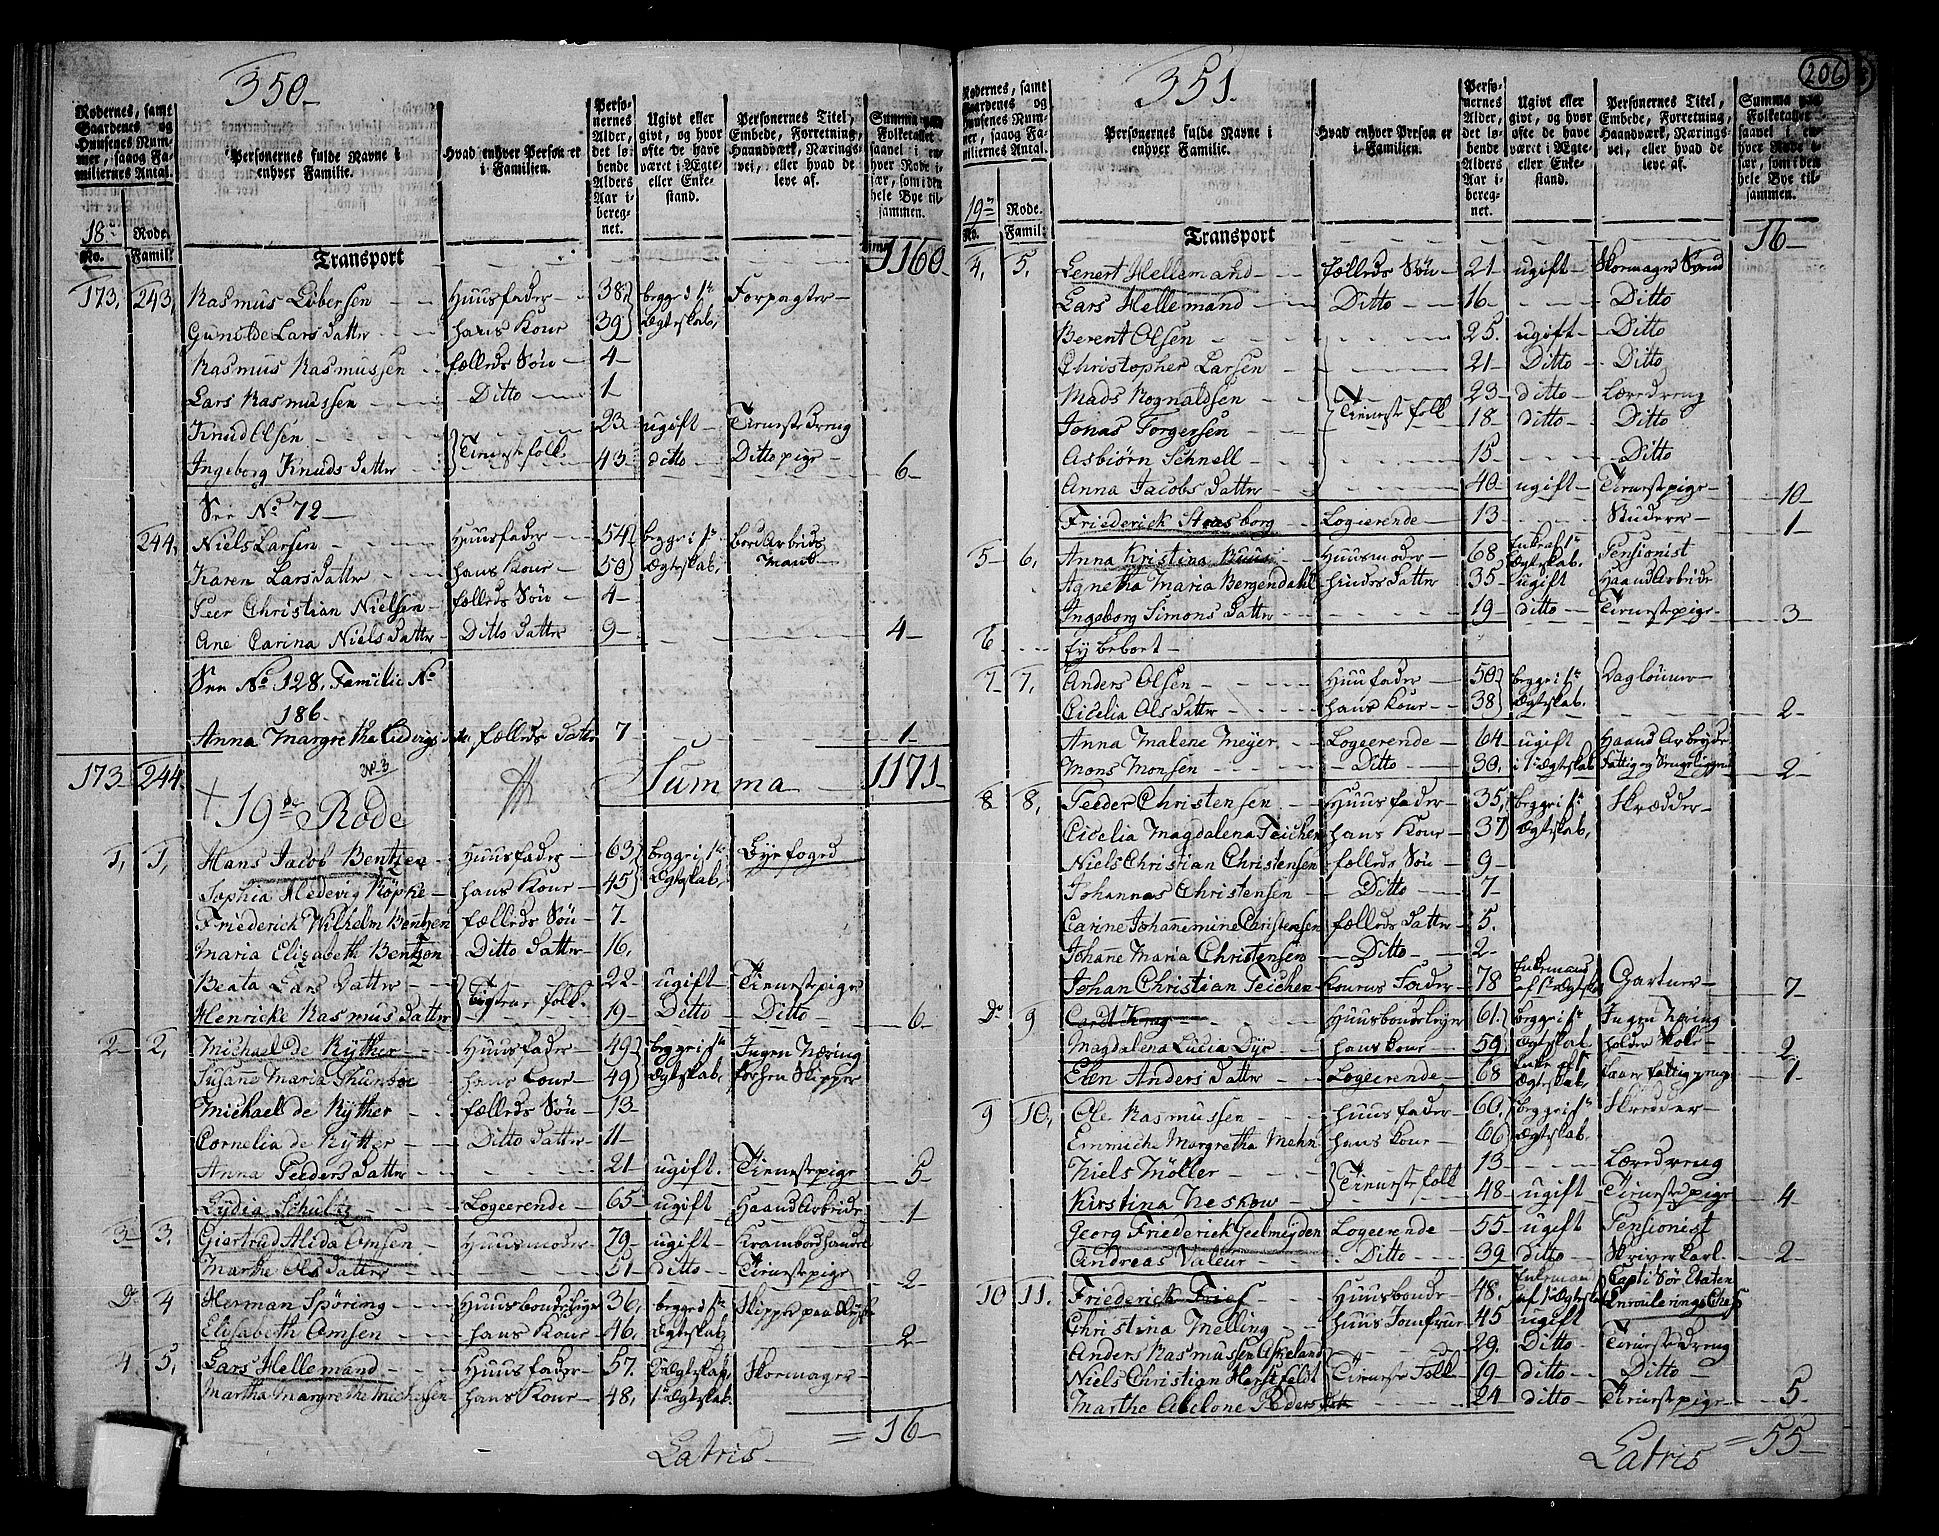 350-
Rodernes, samt Gaardenes og Huusenes Nummer, saaog Familiernes Antal.
Personernes fulde Navne i enhver Familie.
Hvad enhver Person er i Familien.
Personernes Alder, det løbende Alders Aar iberegnet.
Ugivt eller givt, og hvor ofte de have været i Ægte- eller Enkestand.
Personernes Titel, Embede, Forretning, Haandværk, Næringsvei, eller hvad de leve af.
Summa paa Folketallet saavel i enhver Rode især, som i den hele Bye tilsammen.
18de Rode.
No. Famil:
Transport 1160
173, 243, Rasmus Libersen Huusfader 38 begge i 1te Forpagter
Gunilde Lars Datter hans Kone 39 Ægteskab,
Rasmus Rasmussen fælleds Søn 4
Lars Rasmussen Ditto 1
Knud Olsen 23 ugift Tieneste Dreng
Ingeborg Knuds Datter Tienestefolk 43 ditto Ditto pige 6
See No 72
244, Niels Larsen Huusfader 54 begge i 1te Bord Arbeids
Karen Lars Datter hans Kone 50 Ægteskab, Mand
Peer Christian Nielsen fælleds Søn 4
Ane Carina Niels Datter Ditto Datter 9 4
See No 128, Familie No
186
Anna Margretha Ludvigs Datter fælleds Datter 7 1
173 244 Summa 1171
No 3
† 19de Rode
1, 1, Hans Jacob Bentzen Huusfader 63 begge i 1te Byefoged
Sophia Hedevig Röpke hans Kone 45 Ægteskab,
Friederich Wilhelm Bentzen fælleds Søn 7
Maria Elizabeth Bentzon Ditto Datter 16,
Beata Lars Datter 22 ugift Tienestepige
Henricke Rasmus Datter Tienestefolk 19 Ditto Ditto 6
2 2, Michael de Rÿther Huusfader 49 begge i 1te Ingen Næring
Susane Maria Thunboe hans Kone 49 Ægteskab, forhen Skipper
Michael de Rÿther fælleds Søn 13
Cornelia de Rÿther Ditto Datter 11
Anna Peeders Datter 21 ugift. Tienestepige 5
Lydia Schultz Logeerende 65 ugift Haand Arbeide 1
3 3, Giertrud Alida Omsen Huusmoder 79 ugift Krambodhandel
Marthe Ols Datter 51 ditto Tienestepige 2
Do 4 Herman Spöring Huusbonde 36, begge i 1te Skipper paa
Elisabeth Omsen hans Kone 46, Ægteskab 2
4 5, Lars Hellemand Huusfader 57. Ægteskab, Skomager
Martha Margrethe Michelsen hans Kone 48, 1te Ægteskab.
Latris = 16

351.
206
Rodernes, samt Gaardenes og Huusenes Nummer, saaog Familiernes Antal.
Personernes fulde Navne i enhver Familie.
Hvad enhver Person er i Familien.
Personernes Alder, det løbende Alders Aar iberegnet.
Ugivt eller givt, og hvor ofte de have været i Ægte- eller Enkestand.
Personernes Titel, Embede, Forretning, Haandværk, Næringsvei, eller hvad de leve af.
Summa paa Folketallet saavel i enhver Rode især, som i den hele Bye tilsammen.
19de Rode.
No. Famil:
Transport 16
4, 5, Lenert Hellemand fælleds Søn 21 ugift Skomager Svend
Lars Hellemand Ditto 16 Ditto
Berent Olsen 25. ugift Ditto
Christopher Larsen 21 Ditto Ditto
Mads Rognaldsen 23 ditto Læredreng
Jonas Torgersen Tienestefolk 18 ditto Ditto
Asbiørn Schnell 15 Ditto
Anna Jacobs Datter 40 ugift Tienestepige 10
Friederick Strasborg Logierende 13 Studerer 1
5 6, Anna Kristina Huusmoder 68 Enke af 1te Ægteskab. Pensionist
Agnetha Maria Bergendahl hindes Datter 35 ugift Haand Arbeide
Ingeborg Simons Datter 19 ditto Tienestepige 3
6 Ey beboet
7 7, Anders Olsen Huusfader 50 begge i 1te Daglönner
Cicelia Ols Datter hans Kone 38 Ægteskab. 2
Anna Malene Meyer Logeerende 64 ugift Haand Arbeyde
Mons Monsen Ditto 30, i 1te Ægteskab fattig og Sengeliggende 2
8 8, Peeder Christensen Huusfader 35, begge i 1te Skrædder
Cicelia Magdalena Teichen hans Kone 37 Ægteskab,
Niels Christian Christensen fælleds Søn 9
Johannes Christensen Ditto 7
Carine Johannemine Christensen fælleds Datter 5.
Johane Maria Christensen Ditto 2
Johan Christian Teichen Konens Fader 78 Enkemand af 1te Ægteskab Gartner 7
Do 9 Cardt Krog 61. begge i 1te Ingen Næring
Magdalena Lucia Dyr hans Kone 59 Ægteskab holder Skole 2
Elen Anders Datter Logeerende 68 Enke af 1te Ægteskab. 1
9 10, Ole Rasmussen Huusfader 60, begge i 1te Skredder
Emmiche Margretha Mehn hans Kone 66 Ægteskab.
Niels Möller Tienestefolk 13 Læredreng
Kirstina Neskow 48 ugift Tienestepige 4
Georg Friederick Geelmeyden Logeerende 55 ugift Pensionist
Andreas Valeur Ditto 39 ditto Skriverkarl 2
10 11. Friederick Huusbonde 48. Enkemand af 1te Ægteskab Capt: Sør Etaten Enroulerings Chef
Christina Melling Huus Jomfrue 45 ugift
Anders Rasmussen Askeland 29. Ditto Tieneste Dreng
Niels Christian Herstfeldt Tieneste Folk 19 ditto Ditto
Marthe Abelone Peders Datter 24 ditto Tienestepige 5
Latris = 55